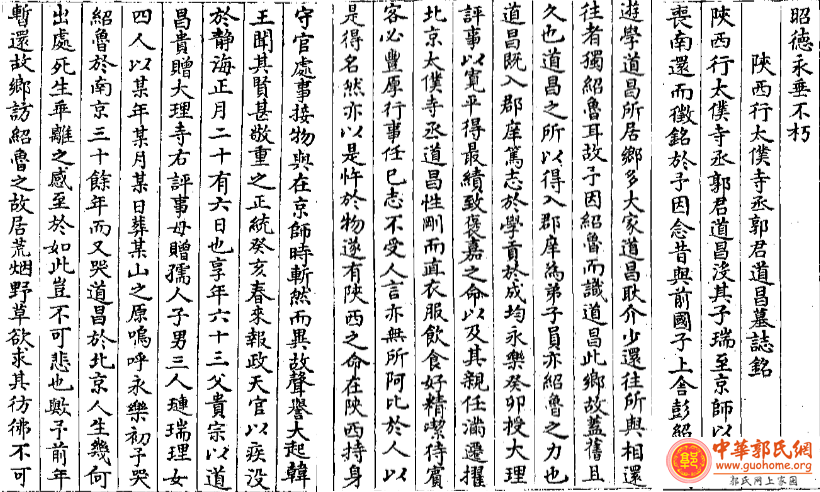 昭德永垂不朽
陝西行太僕寺丞郭君道昌墓誌銘
陝西行太僕寺丞郭君道昌沒其子瑞至京師以
喪南還而徵銘於予因念昔與前國子上舍彭紹
遊學道昌所居鄉多大家道昌耿介少還往所與相還
往者獨紹魯耳故予因紹魯而識道昌此鄉故蓋舊且
久也道昌之所以得入郡庠為弟子員亦紹魯之力也
道昌既入郡庠篤志於學貢於成均永樂癸卯授大理
評事以寬平得最績致褒嘉之命以及其親任滿遷擢
北京太僕寺丞道昌性剛而直衣服飲食好精潔待賓
客必豐厚行事任己志不受人言亦無所阿比於人以
是得名然亦以是忤於物遂有陝西之命在陝西持身
守官處事接物與在京師時斬然而異故聲譽大起韓
王聞其賢甚敬重之正統癸亥春來報政天官以疾沒
於靜海正月二十有六日也享年六十三父貴宗以道
昌貴贈大理寺右評事母贈孺人子男三人璉瑞理女
四人以某年某月某日葬某山之原嗚呼永樂初予哭
紹魯於南京三十餘年而又哭道昌於北京人生幾何
出處死生乖離之感至於如此豈不可悲也歟予前年
暫還故鄉訪紹魯之故居荒烟野草欲求其彷彿不可
中華郭氏網
www.guohome.org
郭氏网上家园